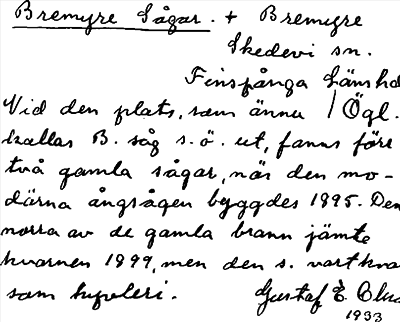 Bremyre Sågar. + Bremyre
Skedevi sn.
Finspånga Länshd
Vid den plats, som ännu / Ögl.
kallas B. såg s.ö. ut, fanns före
två gamla sågar, när den mo-
därna ångsågen byggdes 1895. Den
norra av de gamla brann jämte
kvarnen 1899, men den s. vart kva
som hyvleri. Gustaf E. Clas
1933